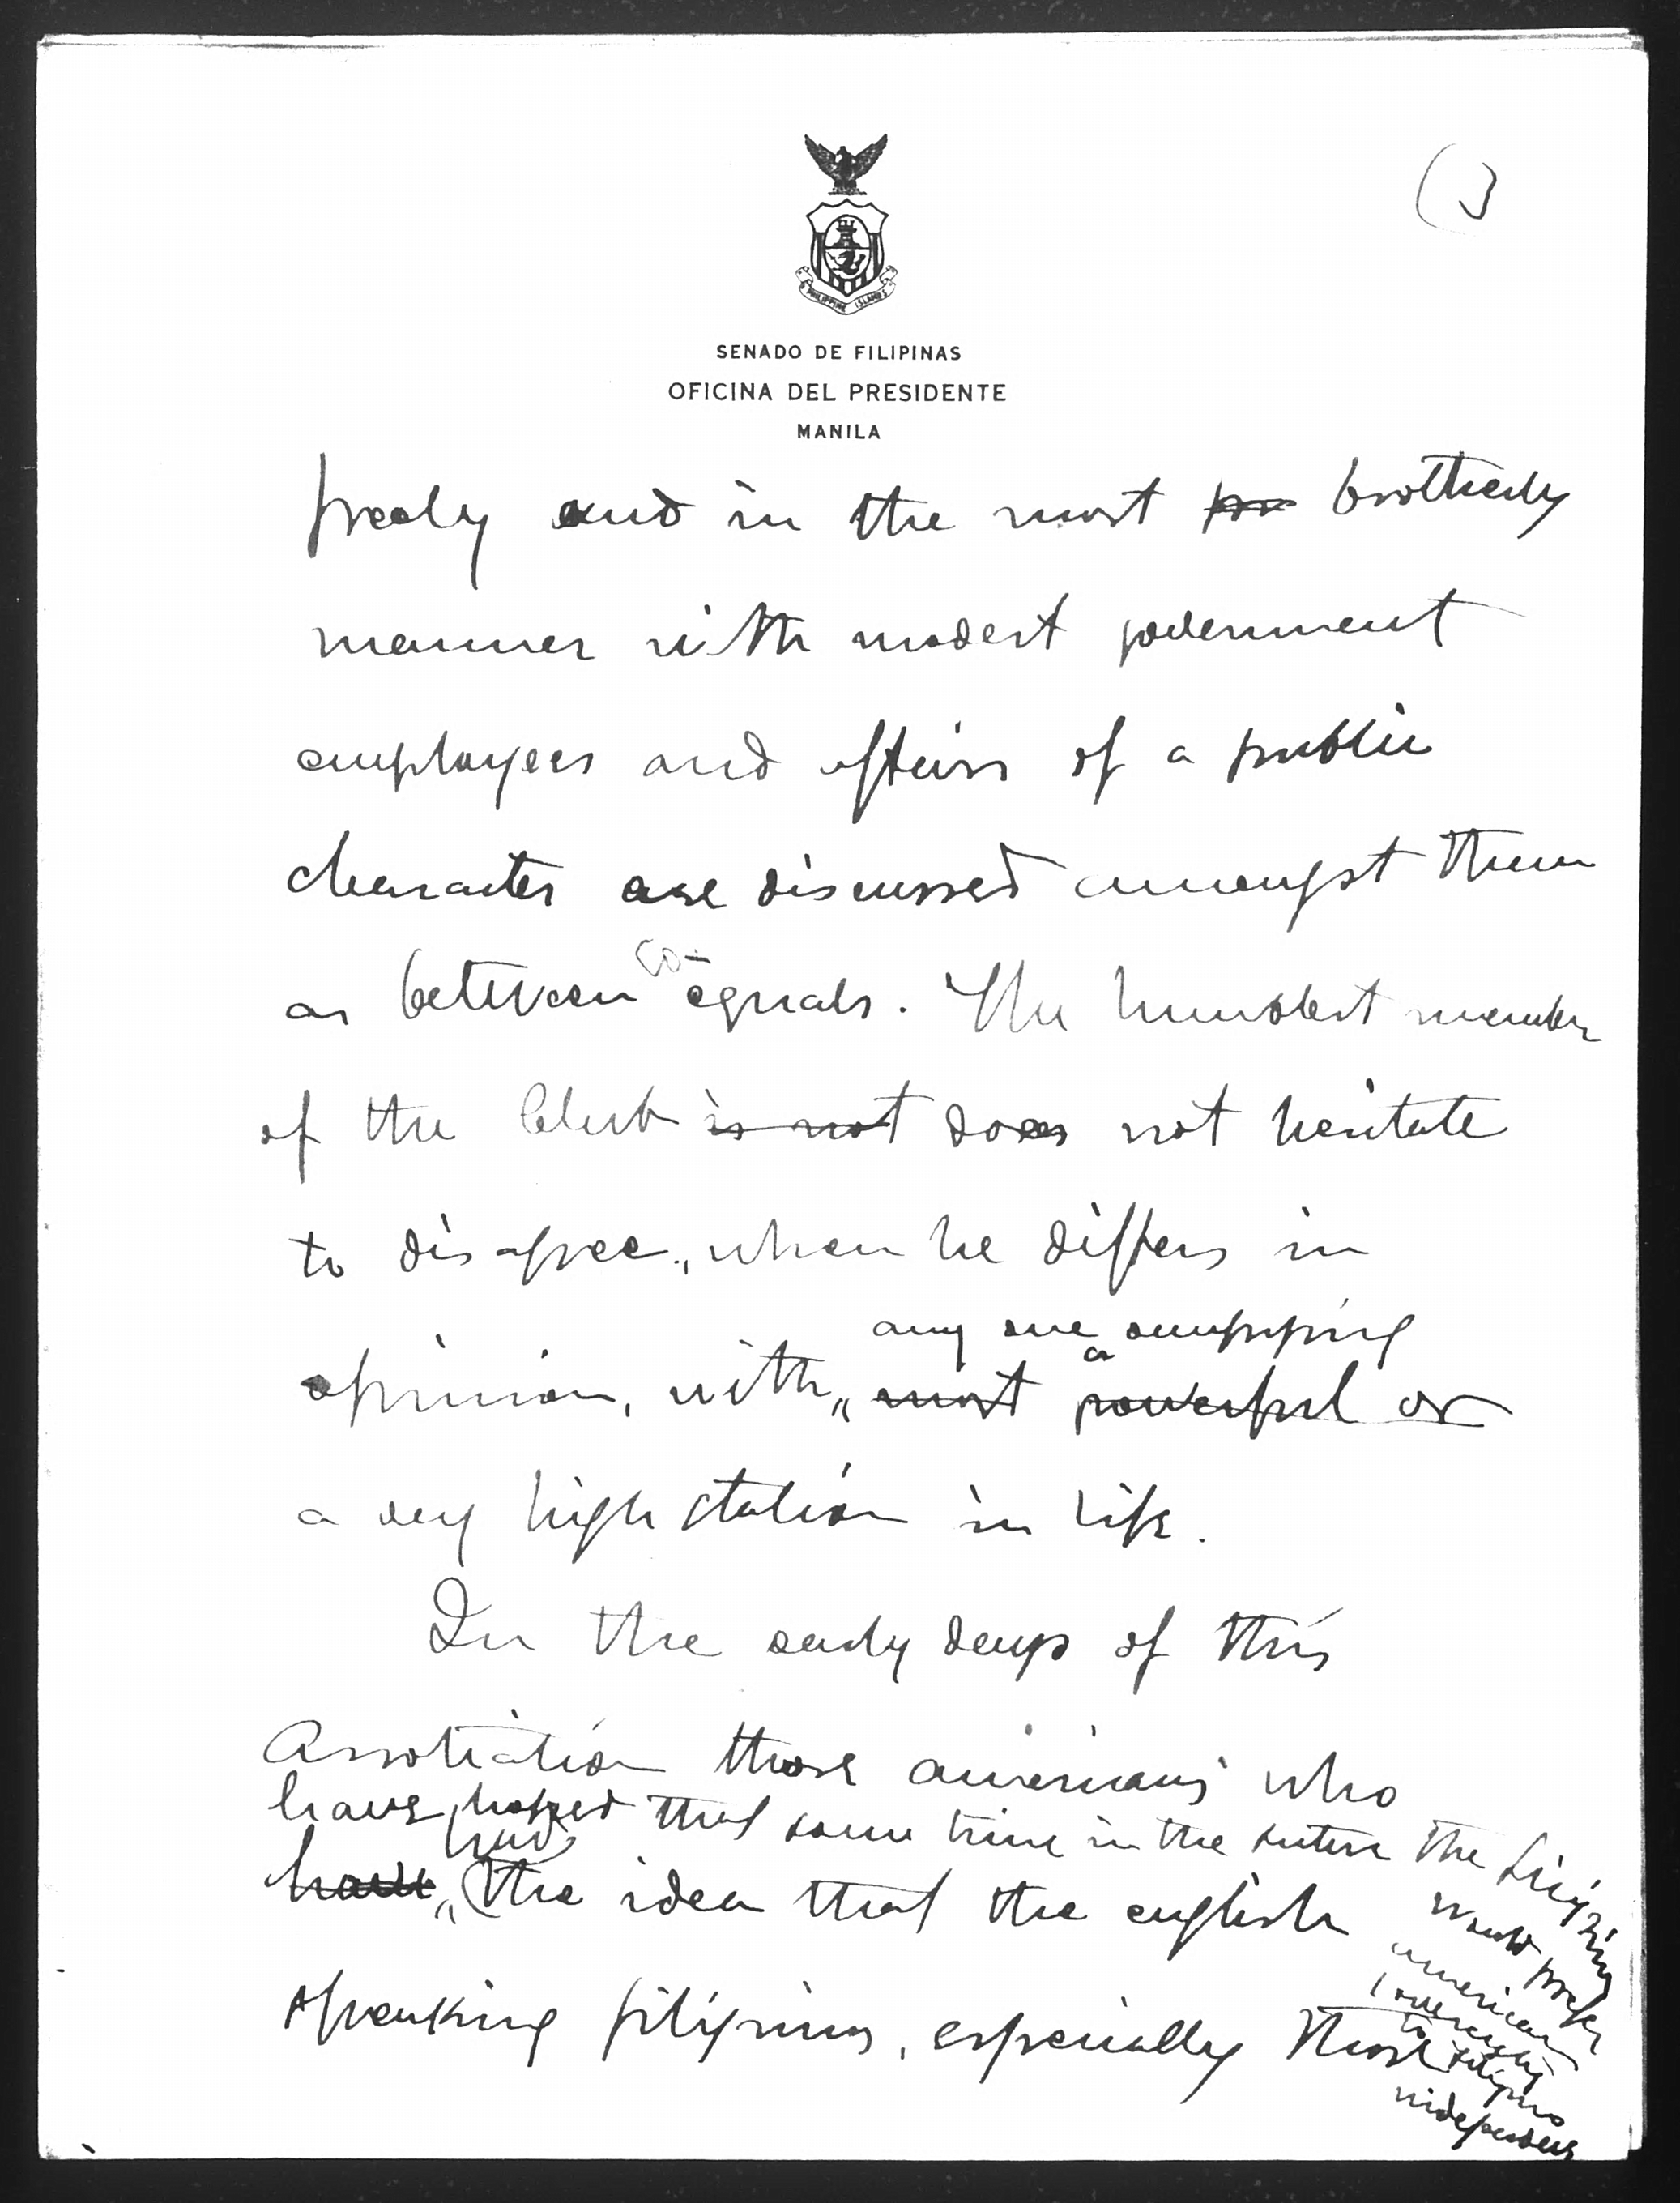 (3
PHILIPPINE ISLANDS
SENADO DE FILIPINAS
OFICINA DEL PRESIDENTE
MANILA
freely and in the most brotherly
manner with modest government
employees and affairs of a public
character are discussed amongst them
as between co-equals. The humblest member
of the Club is not does not hesitate
to disagree, when he differs in
any one occupying
opinion, with most powerful or
a very high station in life.
In the early days of this
Association those americans who
have hoped that some time in the future the filipinos
would prefer
american
sovereignty
to filipino
independence
had
have the idea that the english
speaking filipinos, especially those